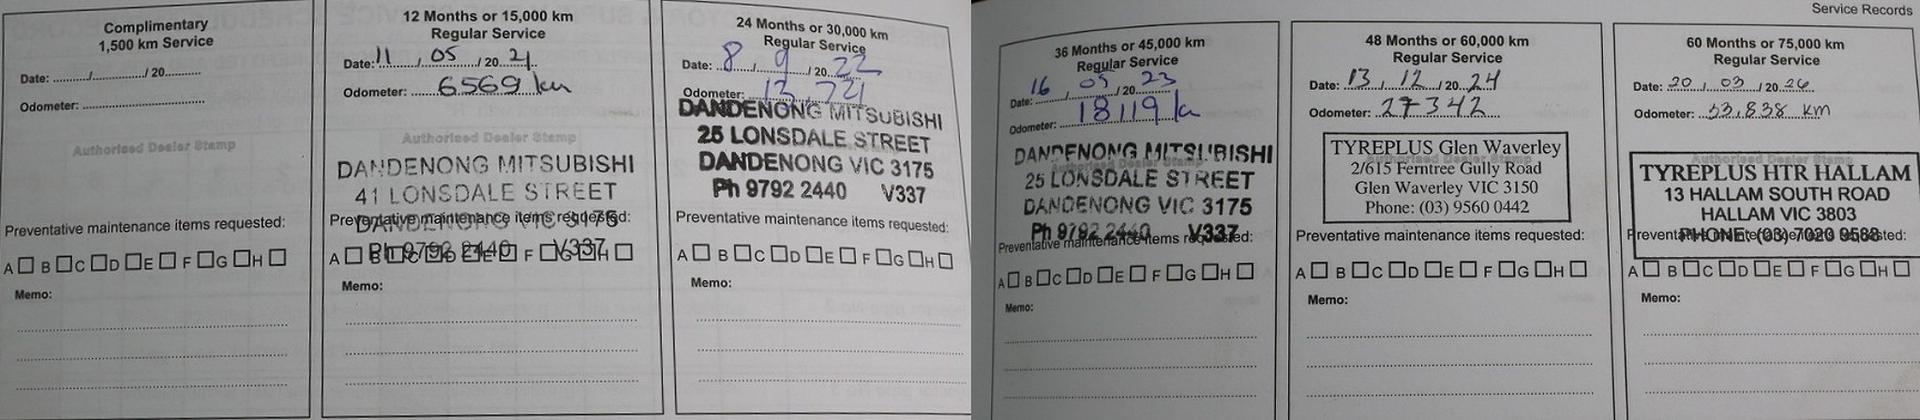 Complimentary
1,500 km Service
Date: ......../............../ 20..........
Odometer: ..................................
Authorised Dealer Stamp
Preventative maintenance items requested:
A☐ B☐ C☐ D☐ E☐ F☐ G☐ H☐
Memo:
12 Months or 15,000 km
Regular Service
Date: 11 / 05 / 20 21
Odometer: 6569 km
Authorised Dealer Stamp
DANDENONG MITSUBISHI
41 LONSDALE STREET
DANDENONG VIC 3175
Preventative maintenance items requested:
Ph 9792 2440 V337
A☐ B☐ C☐ D☐ E☐ F☐ G☐ H☐
Memo:
24 Months or 30,000 km
Regular Service
Date: 8 / 9 / 20 22
Odometer: 13,721
DANDENONG MITSUBISHI
25 LONSDALE STREET
DANDENONG VIC 3175
Ph 9792 2440 V337
Preventative maintenance items requested:
A☐ B☐ C☐ D☐ E☐ F☐ G☐ H☐
Memo:
Service Records
36 Months or 45,000 km
Regular Service
Date: 16 / 05 / 20 23
Odometer: 18119 k
DANDENONG MITSUBISHI
25 LONSDALE STREET
DANDENONG VIC 3175
Ph 9792 2440 V337
Preventative maintenance items requested:
A☐ B☐ C☐ D☐ E☐ F☐ G☐ H☐
Memo:
48 Months or 60,000 km
Regular Service
Date: 13 / 12 / 20 24
Odometer: 27342
TYREPLUS Glen Waverley
Authorised Dealer Stamp
2/615 Ferntree Gully Road
Glen Waverley VIC 3150
Phone: (03) 9560 0442
Preventative maintenance items requested:
A☐ B☐ C☐ D☐ E☐ F☐ G☐ H☐
Memo:
60 Months or 75,000 km
Regular Service
Date: 20 / 03 / 20 26
Odometer: 33,838 km
Authorised Dealer Stamp
TYREPLUS HTR HALLAM
13 HALLAM SOUTH ROAD
HALLAM VIC 3803
PHONE: (03) 7020 9588
Preventative maintenance items requested:
A☐ B☐ C☐ D☐ E☐ F☐ G☐ H☐
Memo: